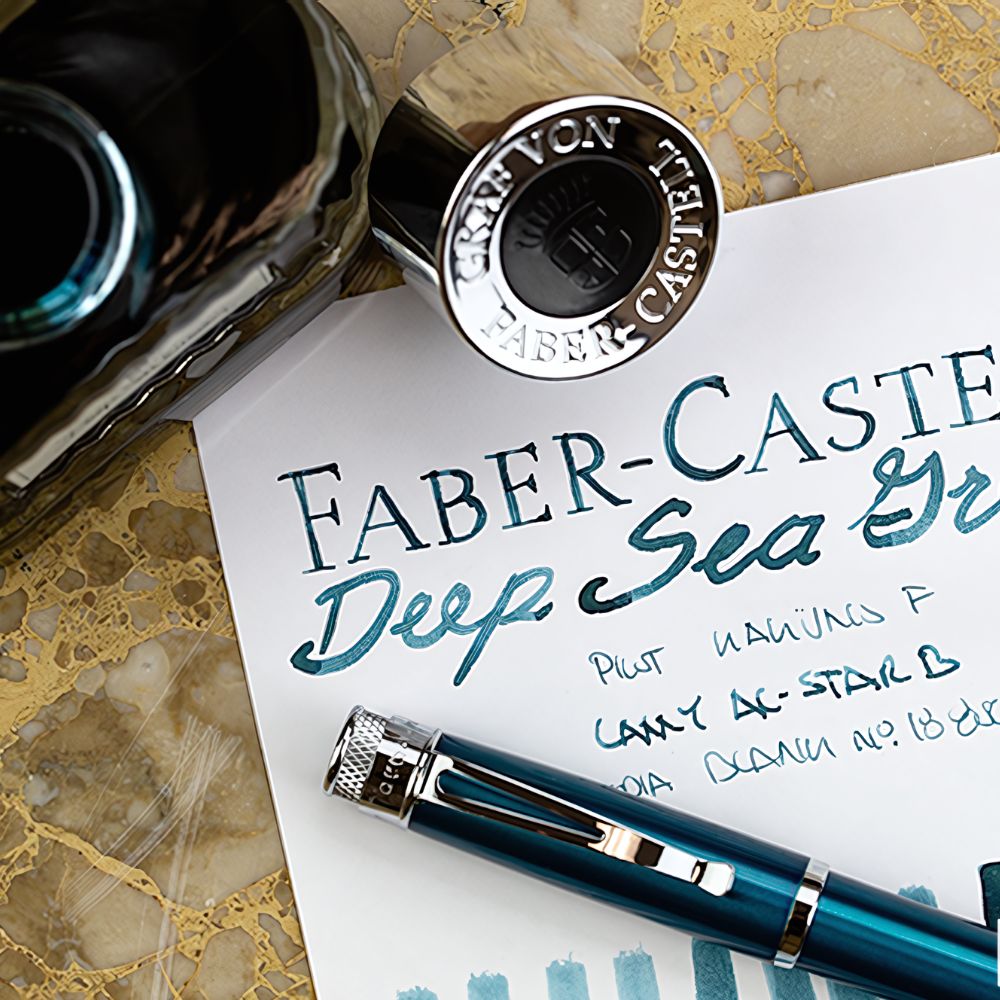 GRAF VON
FABER-CASTELL
FABER-CASTE
Deep Sea Gr
PILOT KAKÜNO F
LAMY AL-STAR B
No. 18